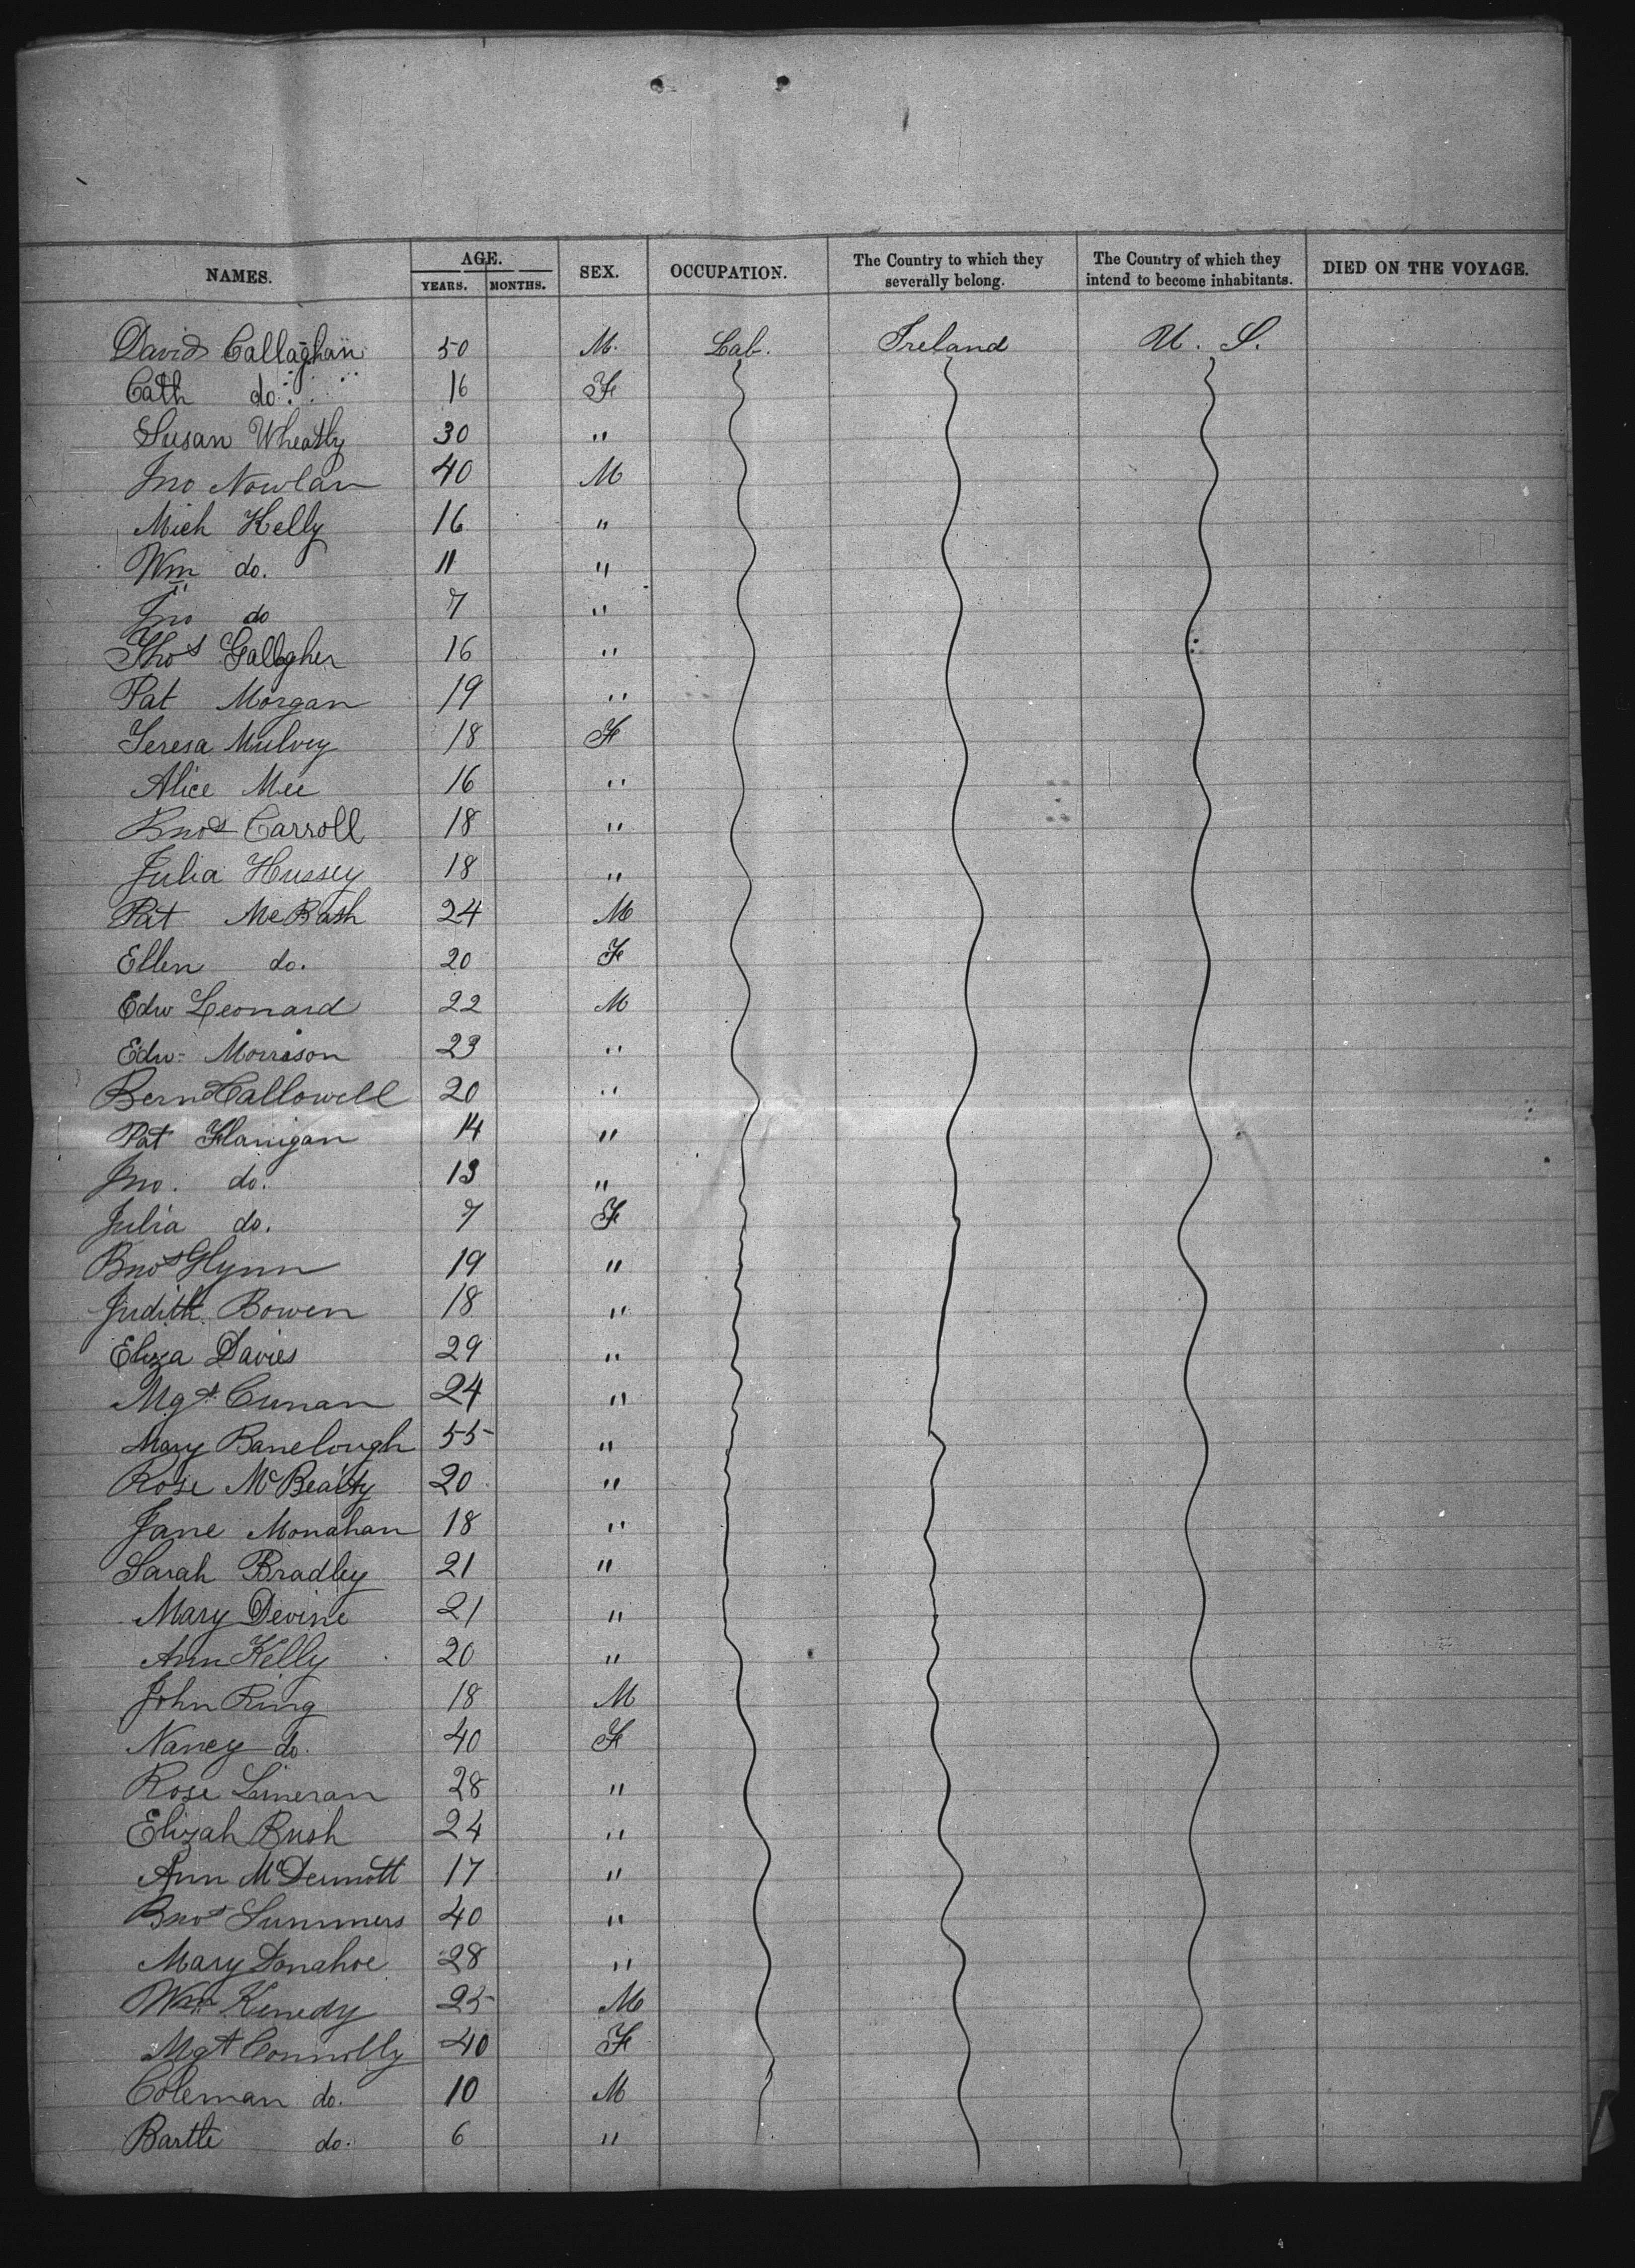 NAMES. AGE. YEARS. MONTHS. SEX. OCCUPATION. The Country to which they severally belong. The Country of which they intend to become inhabitants. DIED ON THE VOYAGE.
David Callaghan 50 M. Lab. Ireland U. S.
Cath do. 16 F
Susan Wheatly 30 "
Jno Nowlan 40 M
Mich Kelly 16 "
Wm do. 11 "
Jno do 7 "
Thos Gallogher 16 "
Pat Morgan 19 "
Teresa Mulvey 18 F
Alice Mee 16 "
Carroll 18 "
Julia Hussey 18 "
Pat McRash 24 M
Ellen do. 20 F
Edw Leonard 22 M
Edw- Morrison 23 "
Bern Hallowell 20 "
Pat Flanigan 14 "
Jno. do. 13 "
Julia do. 7 F
Glynn 19 "
Judith Bowen 18 "
Eliza Davies 29 "
Mgt Cunan 24 "
Mary Banelough 55 "
Rose McBeatty 20 "
Jane Monahan 18 "
Sarah Bradley 21 "
Mary Devine 21 "
Ann Kelly 20 "
John Ring 18 M
Nancy do. 40 F
Rose Lineran 28 "
Elizah Bush 24 "
Ann McDermott 17 "
Summers 40 "
Mary Donahoe 28 "
Wm Kenedy 25 M
Mgt Connolly 40 F
Coleman do. 10 M
Bartle do. 6 "
4